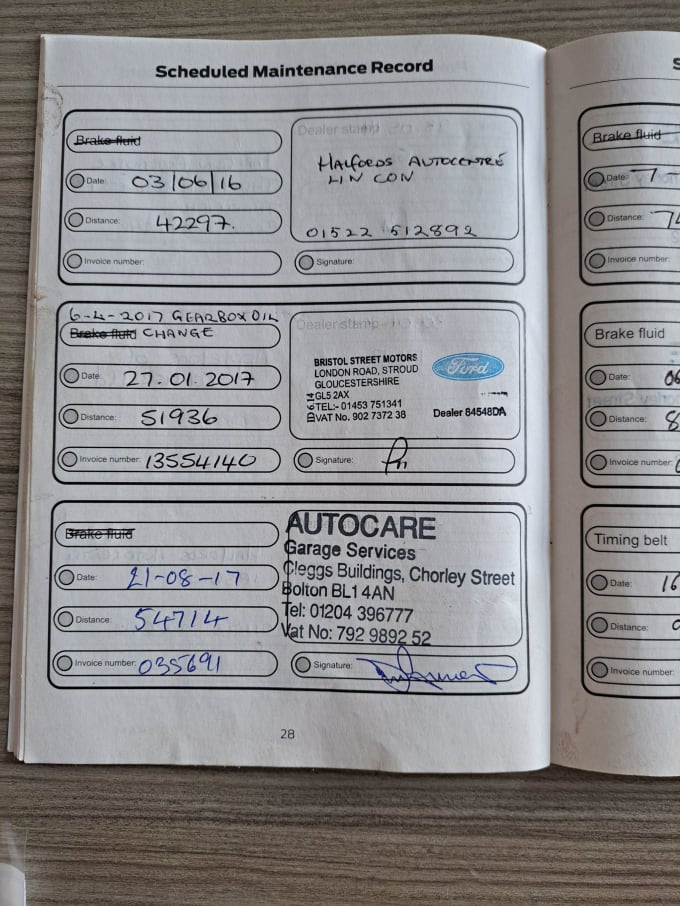 Scheduled Maintenance Record
Brake fluid
Date: 03/06/16
Distance: 42297.
Invoice number:
Dealer stamp
HALFORDS AUTOCENTRE
LINCON
01522 512892
Signature:
6-4-2017 GEARBOX OIL
Brake fluid CHANGE
Date: 27.01.2017
Distance: 51936
Invoice number: 13554140
Dealer stamp
BRISTOL STREET MOTORS
LONDON ROAD, STROUD
GLOUCESTERSHIRE
GL5 2AX
TEL:- 01453 751341
VAT No. 902 7372 38
Ford
Dealer 84548DA
Signature:
Brake fluid
Date: 21-08-17
Distance: 54714
Invoice number: 035691
AUTOCARE
Garage Services
Cleggs Buildings, Chorley Street
Bolton BL1 4AN
Tel: 01204 396777
Vat No: 792 9892 52
Signature:
28
S
Brake fluid
Date:
Distance:
Invoice number:
Brake fluid
Date: 06
Distance: 8
Invoice number:
Timing belt
Date: 16
Distance:
Invoice number: